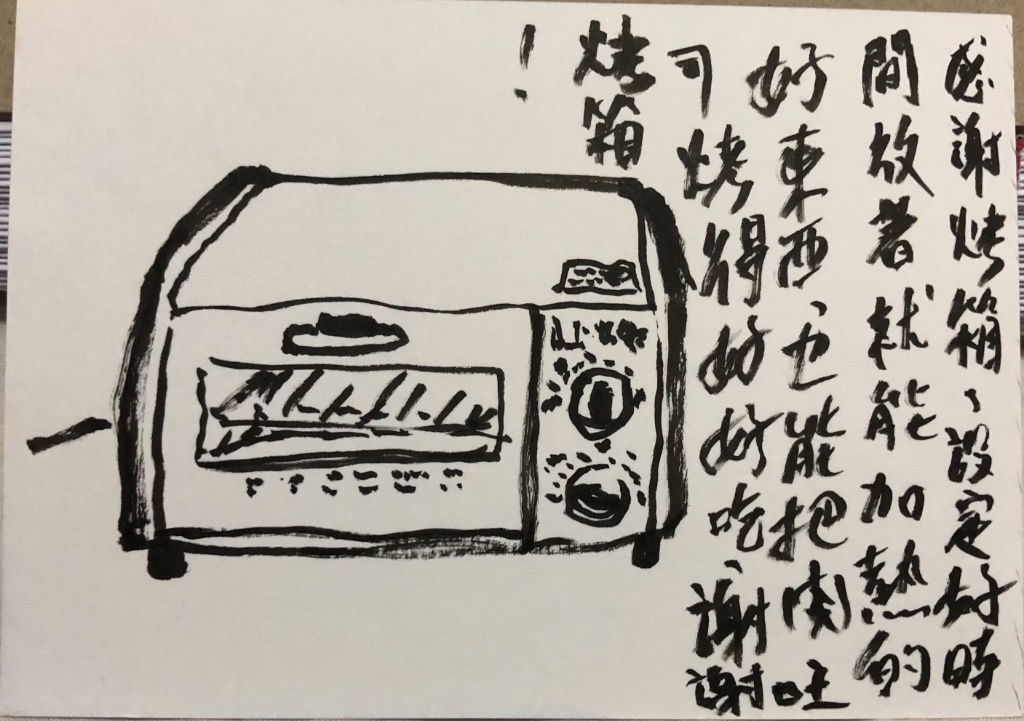 感謝烤箱，設定好時
間放著就能加熱的
好東西、也能把肉吐
司烤得好好吃、謝謝
烤箱
！